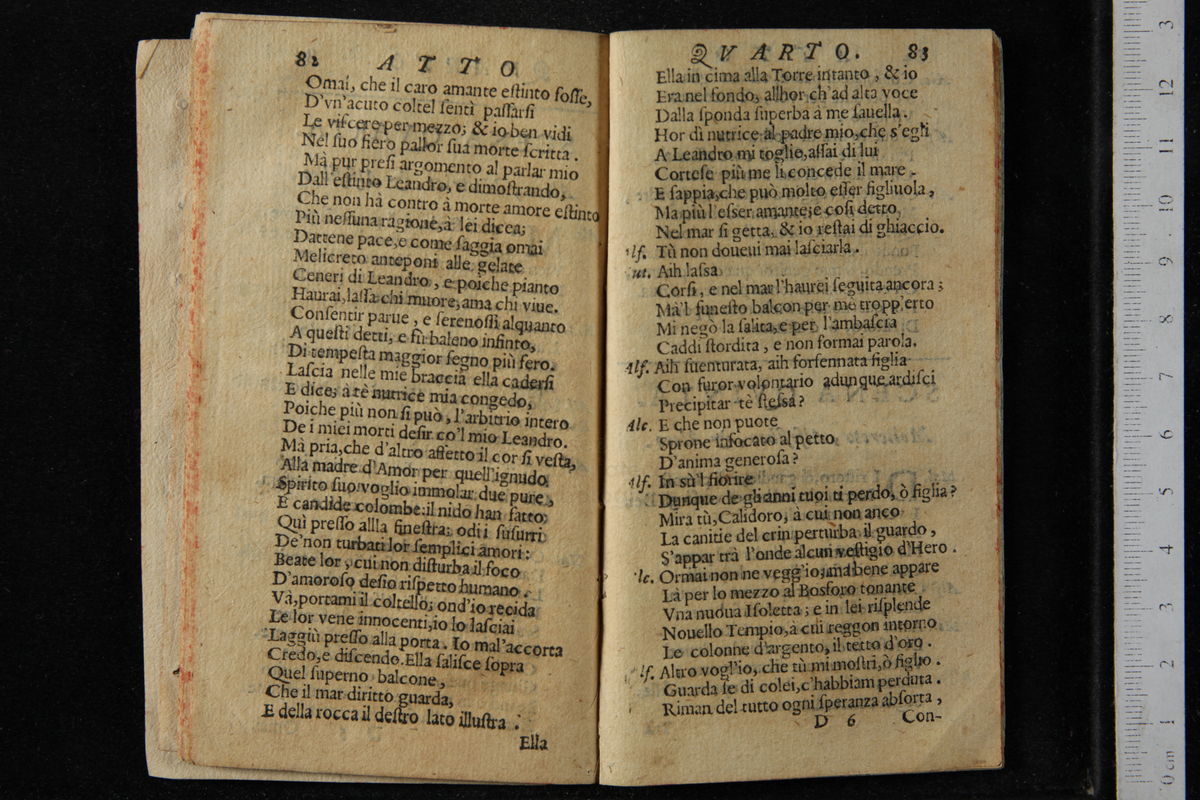 82 ATTO
Omai, che il caro amante eſtinto foſſe,
D'vn'acuto coltel ſentì paſſarſi
Le viſcere per mezzo; & io ben vidi
Nel ſuo fiero pallor ſua morte ſcritta.
Mà pur preſi argomento al parlar mio
Dall'eſtinto Leandro, e dimoſtrando,
Che non hà contro à morte amore eſtinto
Più neſſuna ragione, à lei dicea;
Dattene pace, e come ſaggia omai
Melicreto anteponi alle gelate
Ceneri di Leandro, e poiche pianto
Haurai, laſſa chi muore, ama chi viue.
Conſentir parue, e ſerenoſſi alquanto
A queſti detti, e fù baleno infinto,
Di tempeſta maggior ſegno più fero.
Laſcia nelle mie braccia ella caderſi
E dice; à tè nutrice mia congedo,
Poiche più non ſi può, l'arbitrio intero
De i miei morti deſir co'l mio Leandro.
Mà pria, che d'altro affetto il cor ſi veſta,
Alla madre d'Amor per quell'ignudo
Spirito ſuo voglio immolar due pure,
E candide colombe: il nido han fatto
Quì preſſo allla fineſtra; odi i ſuſurri
De'non turbati lor ſemplici amori:
Beate lor, cui non diſturba il foco
D'amoroſo deſio riſpetto humano.
Và, portami il coltello, ond'io recida
Le lor vene innocenti, io lo laſciai
Laggiù preſſo alla porta. Io mal'accorta
Credo, e diſcendo. Ella ſaliſce ſopra
Quel ſuperno balcone,
Che il mar diritto guarda,
E della rocca il deſtro lato illuſtra.
Ella
QVARTO. 83
Ella in cima alla Torre intanto, & io
Era nel fondo, allhor ch'ad alta voce
Dalla ſponda ſuperba à me fauella.
Hor dì nutrice al padre mio, che s'egli
A Leandro mi toglie, aſſai di lui
Corteſe più me li concede il mare.
E ſappia, che può molto eſſer figliuola,
Ma più l'eſſer amante; e coſi detto,
Nel mar ſi getta, & io reſtai di ghiaccio.
lf. Tù non doueui mai laſciarla.
ut. Aih laſſa
Corſi, e nel mar l'haurei ſeguita ancora;
Mà'l funeſto balcon per me tropp'erto
Mi negò la ſalita, e per l'ambaſcia
Caddi ſtordita, e non formai parola.
Alf. Aih ſuenturata, aih forſennata figlia
Con furor volontario adunque ardiſci
Precipitar tè ſteſſa?
Alc. E che non puote
Sprone infocato al petto
D'anima generoſa?
Alf. In sù'l fiorire
Dunque de gli anni tuoi ti perdo, ò figlia?
Mira tù, Calidoro, à cui non anco
La canitie del crin perturba il guardo,
S'appar trà l'onde alcun veſtigio d'Hero.
lc. Ormai non ne vegg'io; ma bene appare
Là per lo mezzo al Bosforo tonante
Vna nuoua Iſoletta; e in lei riſplende
Nouello Tempio, à cui reggon intorno
Le colonne d'argento, il tetto d'oro.
lf. Altro vogl'io, che tù mi moſtri, ò figlio.
Guarda ſe di colei, c'habbiam perduta.
Riman del tutto ogni ſperanza abſorta,
D 6 Con-